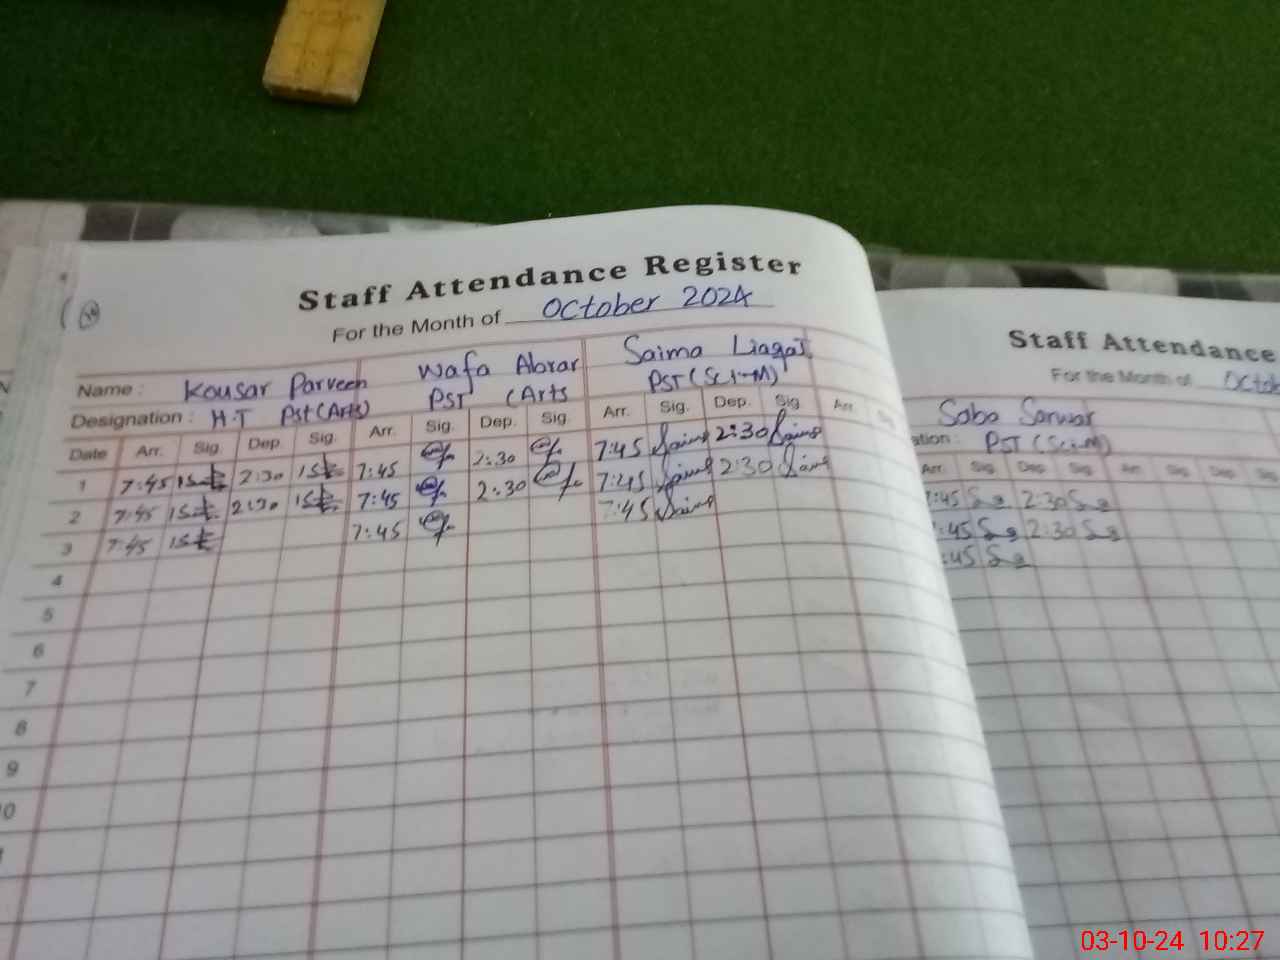 Staff Attendance Register
For the Month of October 2024
Name: Kousar Parveen Wafa Abrar Saima Liaqat
Designation: H.T Pst(Arts) PST (Arts PST(Sci-M)
Date Arr. Sig. Dep. Sig. Arr. Sig. Dep. Sig. Arr. Sig. Dep. Sig. Arr.
1 7:45 2:30 7:45 2:30 7:45 Saima 2:30 Saima
2 7:45 2:30 7:45 2:30 7:45 Saima 2:30 Saima
3 7:45 7:45 7:45 Saima
4
5
6
7
8
9
10
Staff Attendance
For the Month of Octob
Saba Sarwar
ation: PST (Sci-M)
Arr. Sig. Dep. Sig. Arr. Sig. Dep. Sig.
7:45 2:30
:45 2:30
:45
03-10-24 10:27